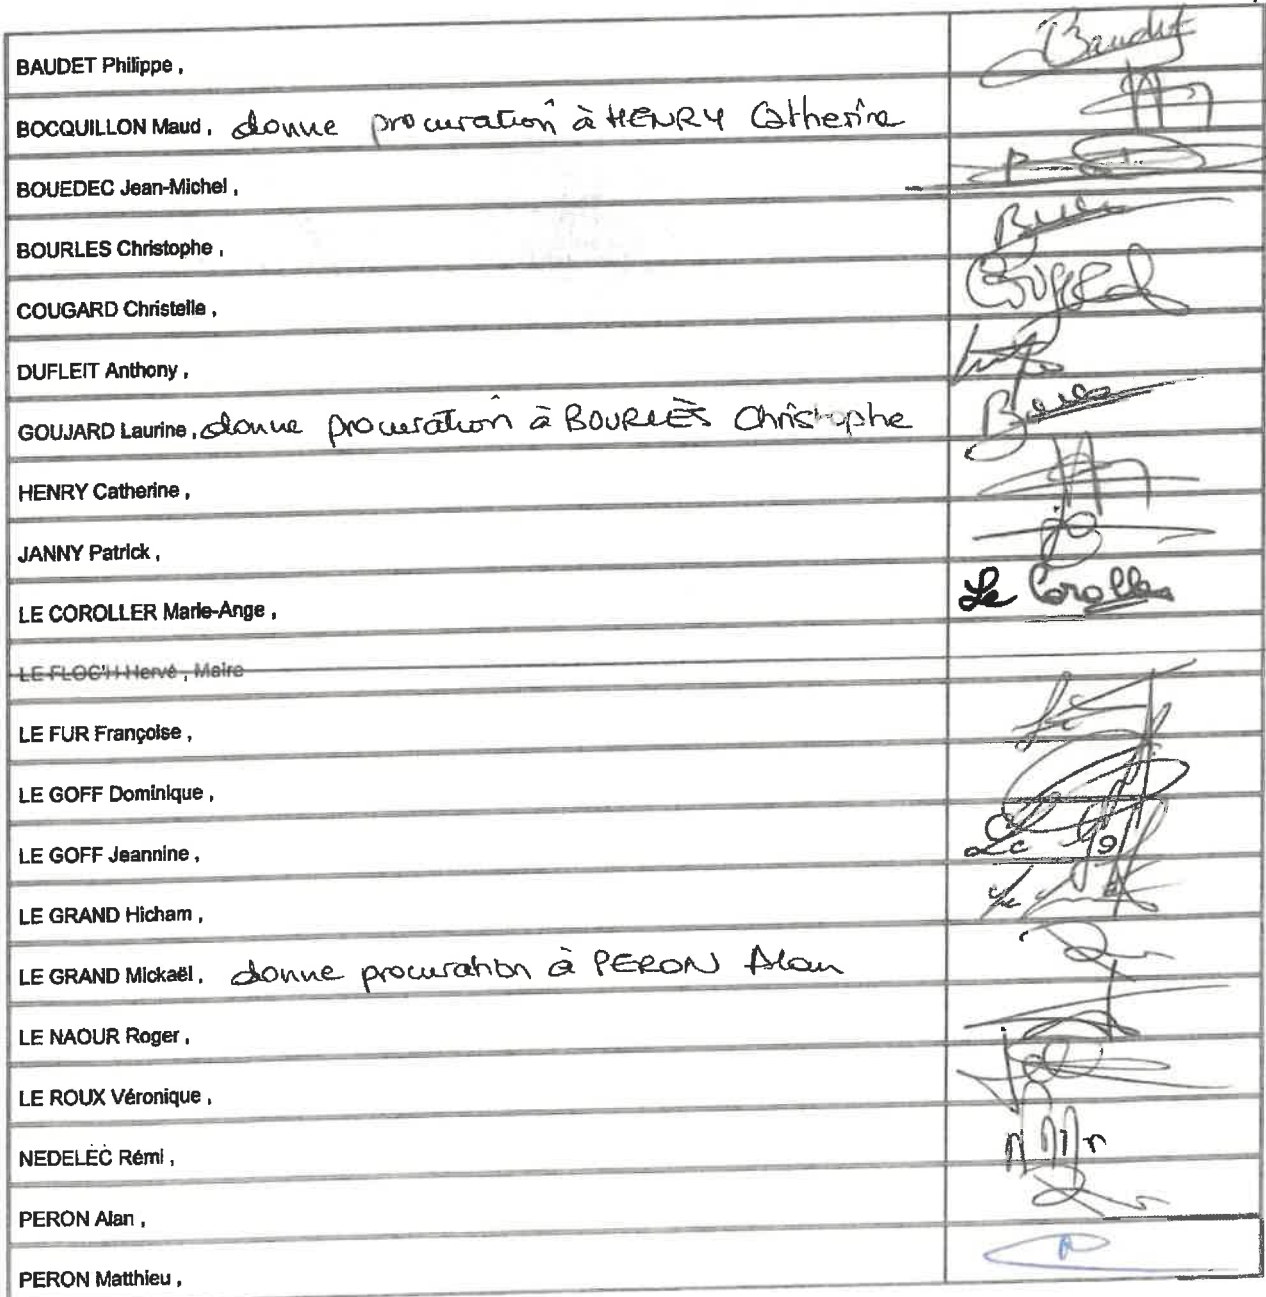 BAUDET Philippe , Baudet
BOCQUILLON Maud , donne procuration à HENRY Catherine
BOUEDEC Jean-Michel ,
BOURLES Christophe ,
COUGARD Christelle , Cougard
DUFLEIT Anthony ,
GOUJARD Laurine , donne procuration à BOURLÈS Christophe
HENRY Catherine ,
JANNY Patrick ,
LE COROLLER Marie-Ange , Le Coroller
LE FLOC'H Hervé , Maire
LE FUR Françoise ,
LE GOFF Dominique ,
LE GOFF Jeannine ,
LE GRAND Hicham ,
LE GRAND Mickaël , donne procuration à PERON Alan
LE NAOUR Roger ,
LE ROUX Véronique ,
NEDELEC Rémi ,
PERON Alan ,
PERON Matthieu ,